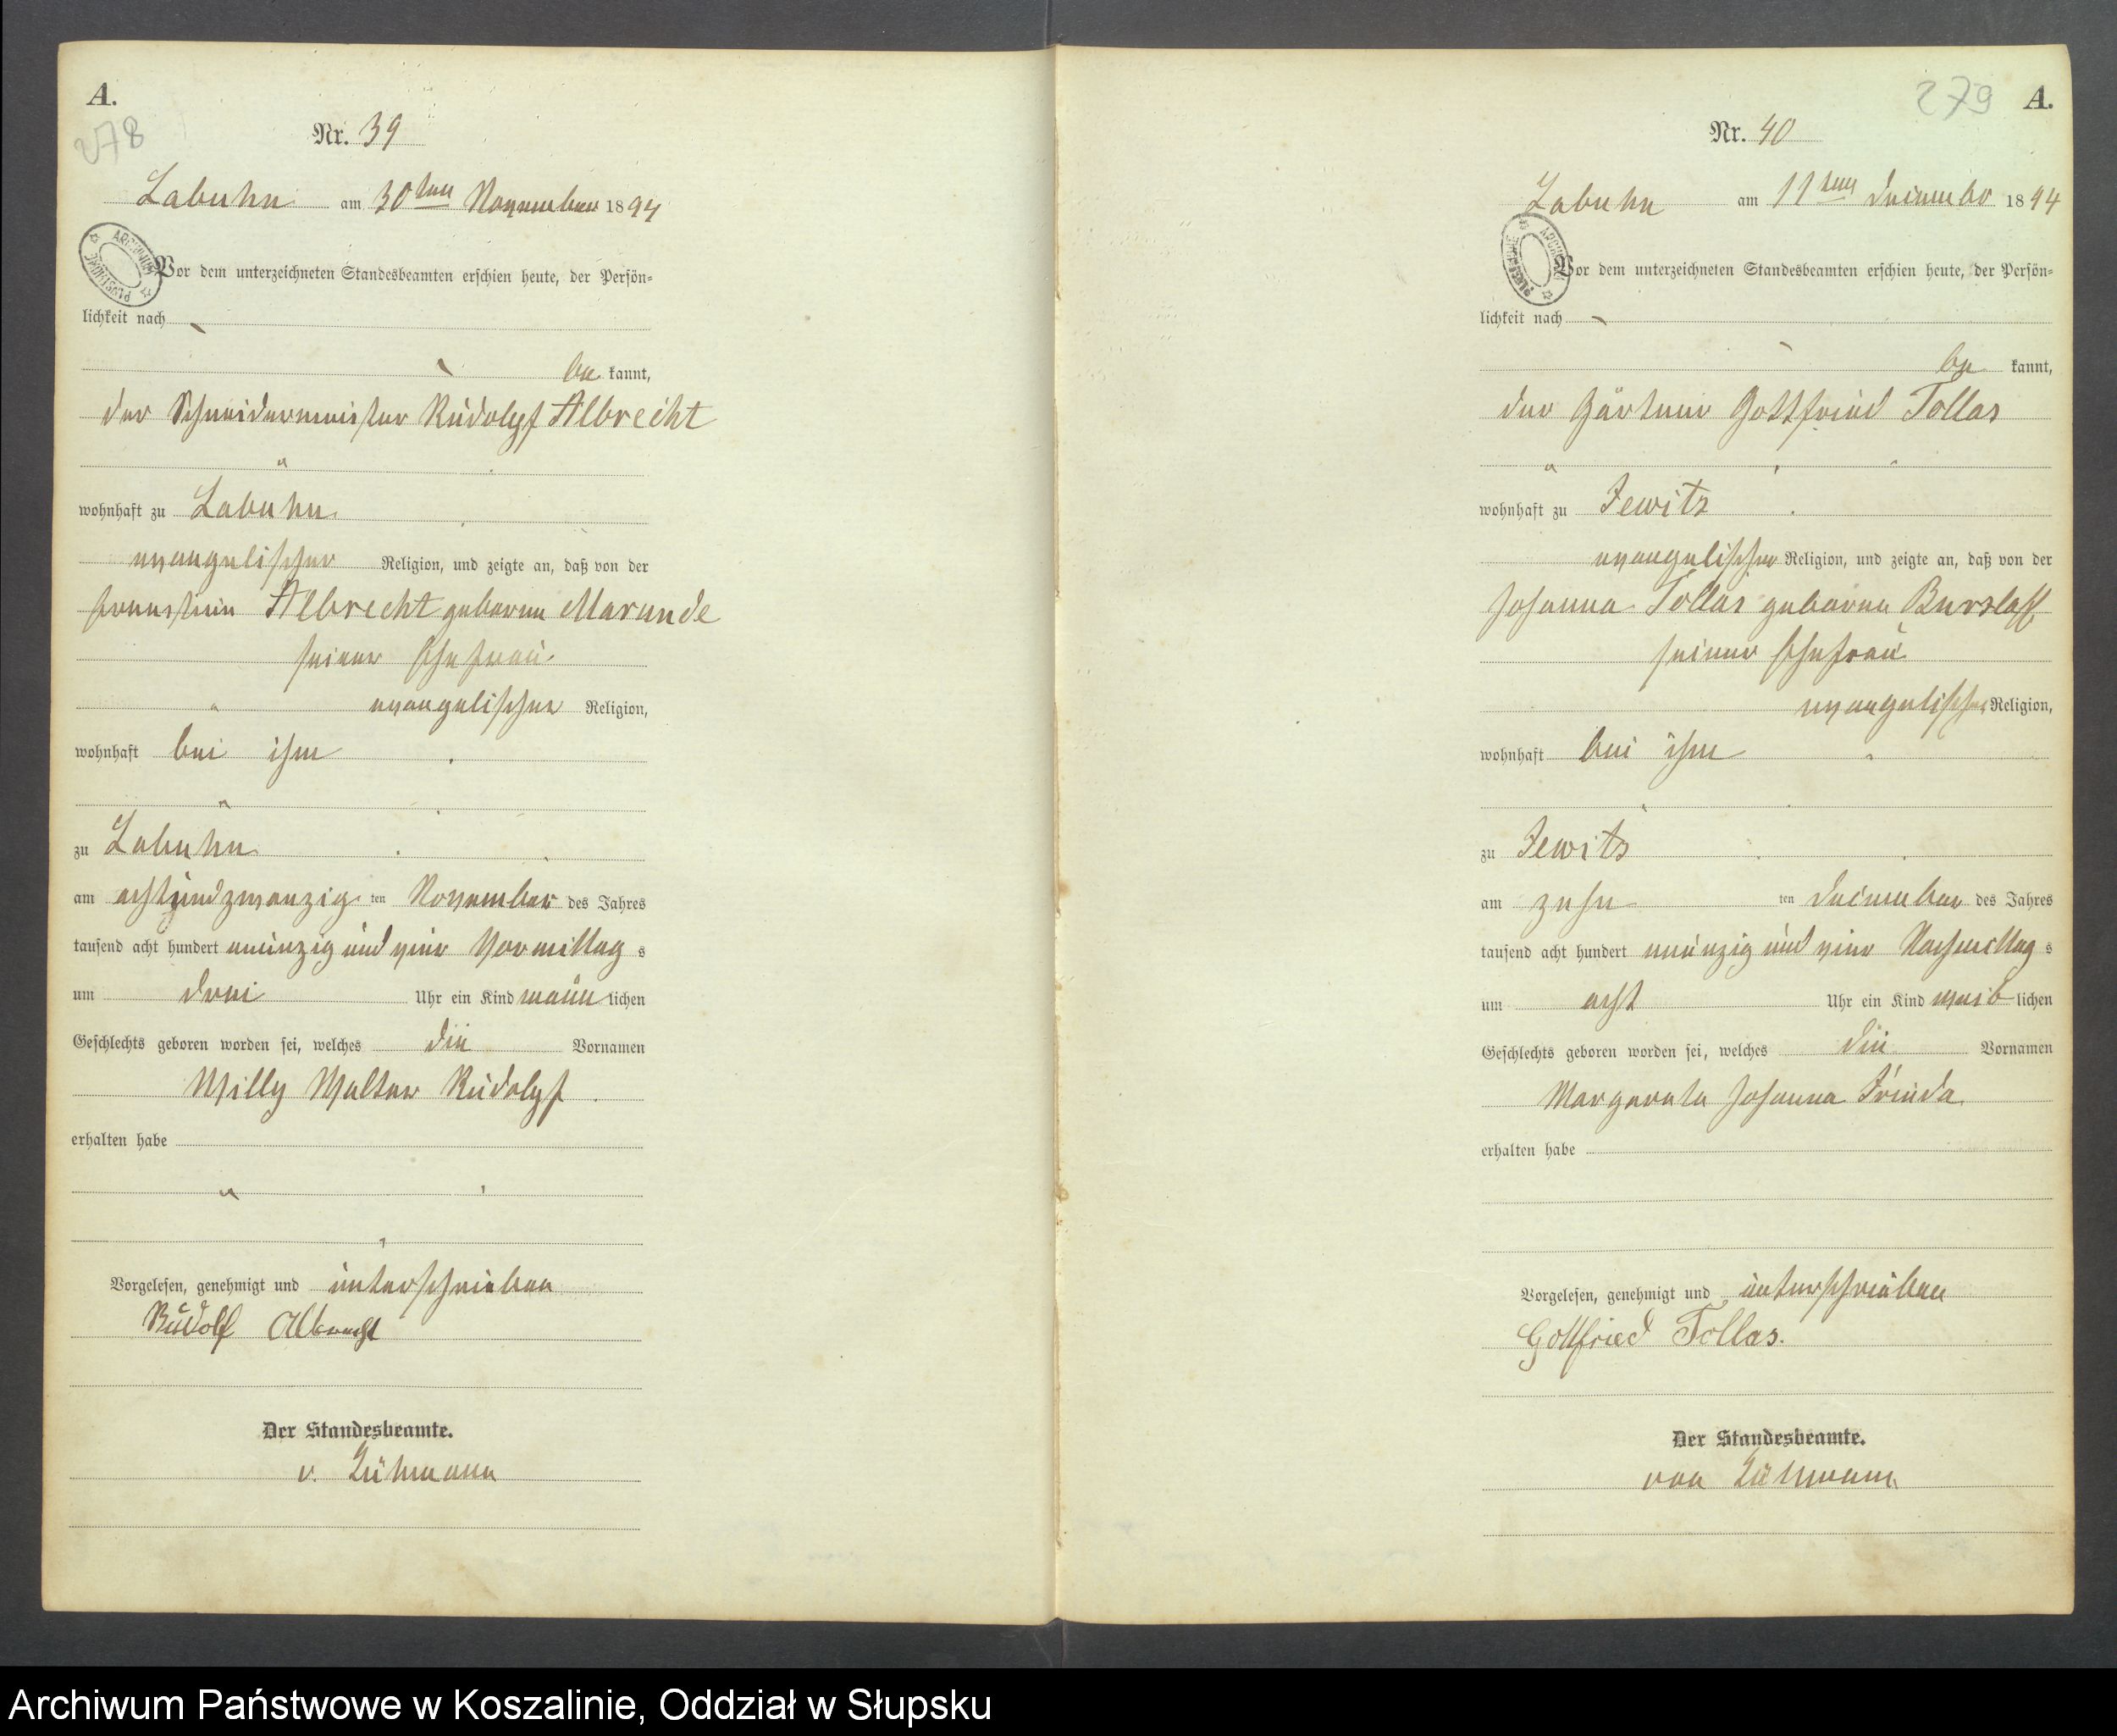 A.
278
Nr. 39
Labuhn am 30ten November 1894
ARCHIWUM PAŃSTWOWE
Vor dem unterzeichneten Standesbeamten erschien heute, der Persön=
lichkeit nach
be kannt,
der Schneidermeister Rudolf Albrecht
wohnhaft zu Labuhn
evangelischer Religion, und zeigte an, daß von der
Albrecht geborene Marunde
seiner Ehefrau
evangelischer Religion,
wohnhaft bei ihm
zu Labuhn
am achtundzwanzig ten November des Jahres
tausend acht hundert neunzig und vier Vormittag s
um drei Uhr ein Kind männ lichen
Geschlechts geboren worden sei, welches die Vornamen
Willy Walter Rudolf
erhalten habe
Vorgelesen, genehmigt und unterschrieben
Rudolf Albrecht
Der Standesbeamte.
v.
279
A.
Nr. 40
Labuhn am 11ten December 1894
ARCHIWUM PAŃSTWOWE
Vor dem unterzeichneten Standesbeamten erschien heute, der Persön=
lichkeit nach
be kannt,
der Gärtner Gottfried Tollas
wohnhaft zu Jewitz
evangelischer Religion, und zeigte an, daß von der
Johanna Tollas geborene Burzlaff
seiner Ehefrau
evangelischer Religion,
wohnhaft bei ihm
zu Jewitz
am zehn ten December des Jahres
tausend acht hundert neunzig und vier Nachmittag s
um acht Uhr ein Kind weib lichen
Geschlechts geboren worden sei, welches die Vornamen
Margareta Johanna
erhalten habe
Vorgelesen, genehmigt und unterschrieben
Gottfried Tollas.
Der Standesbeamte.
von
Archiwum Państwowe w Koszalinie, Oddział w Słupsku